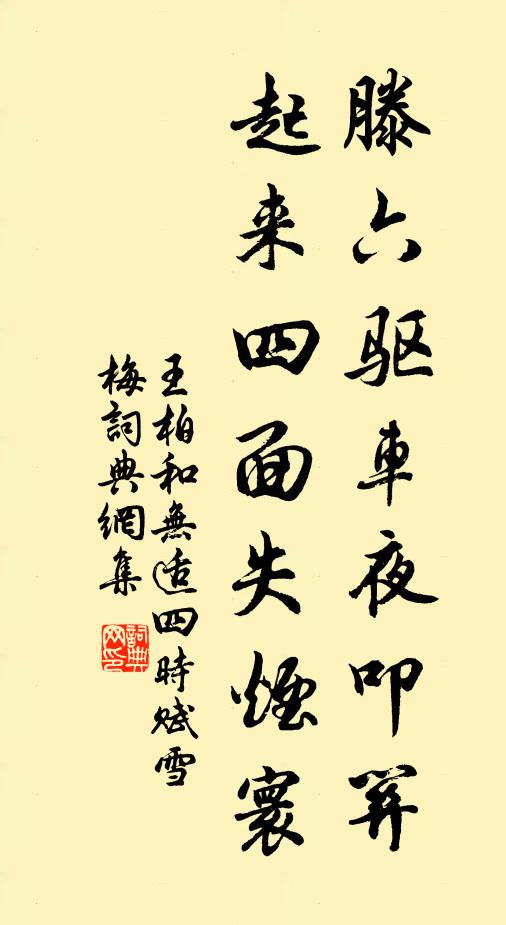 滕六驱車夜叩關
起来四面失煙寰
王柏和無適四時賦雪
梅詞典網集
詞典
网印